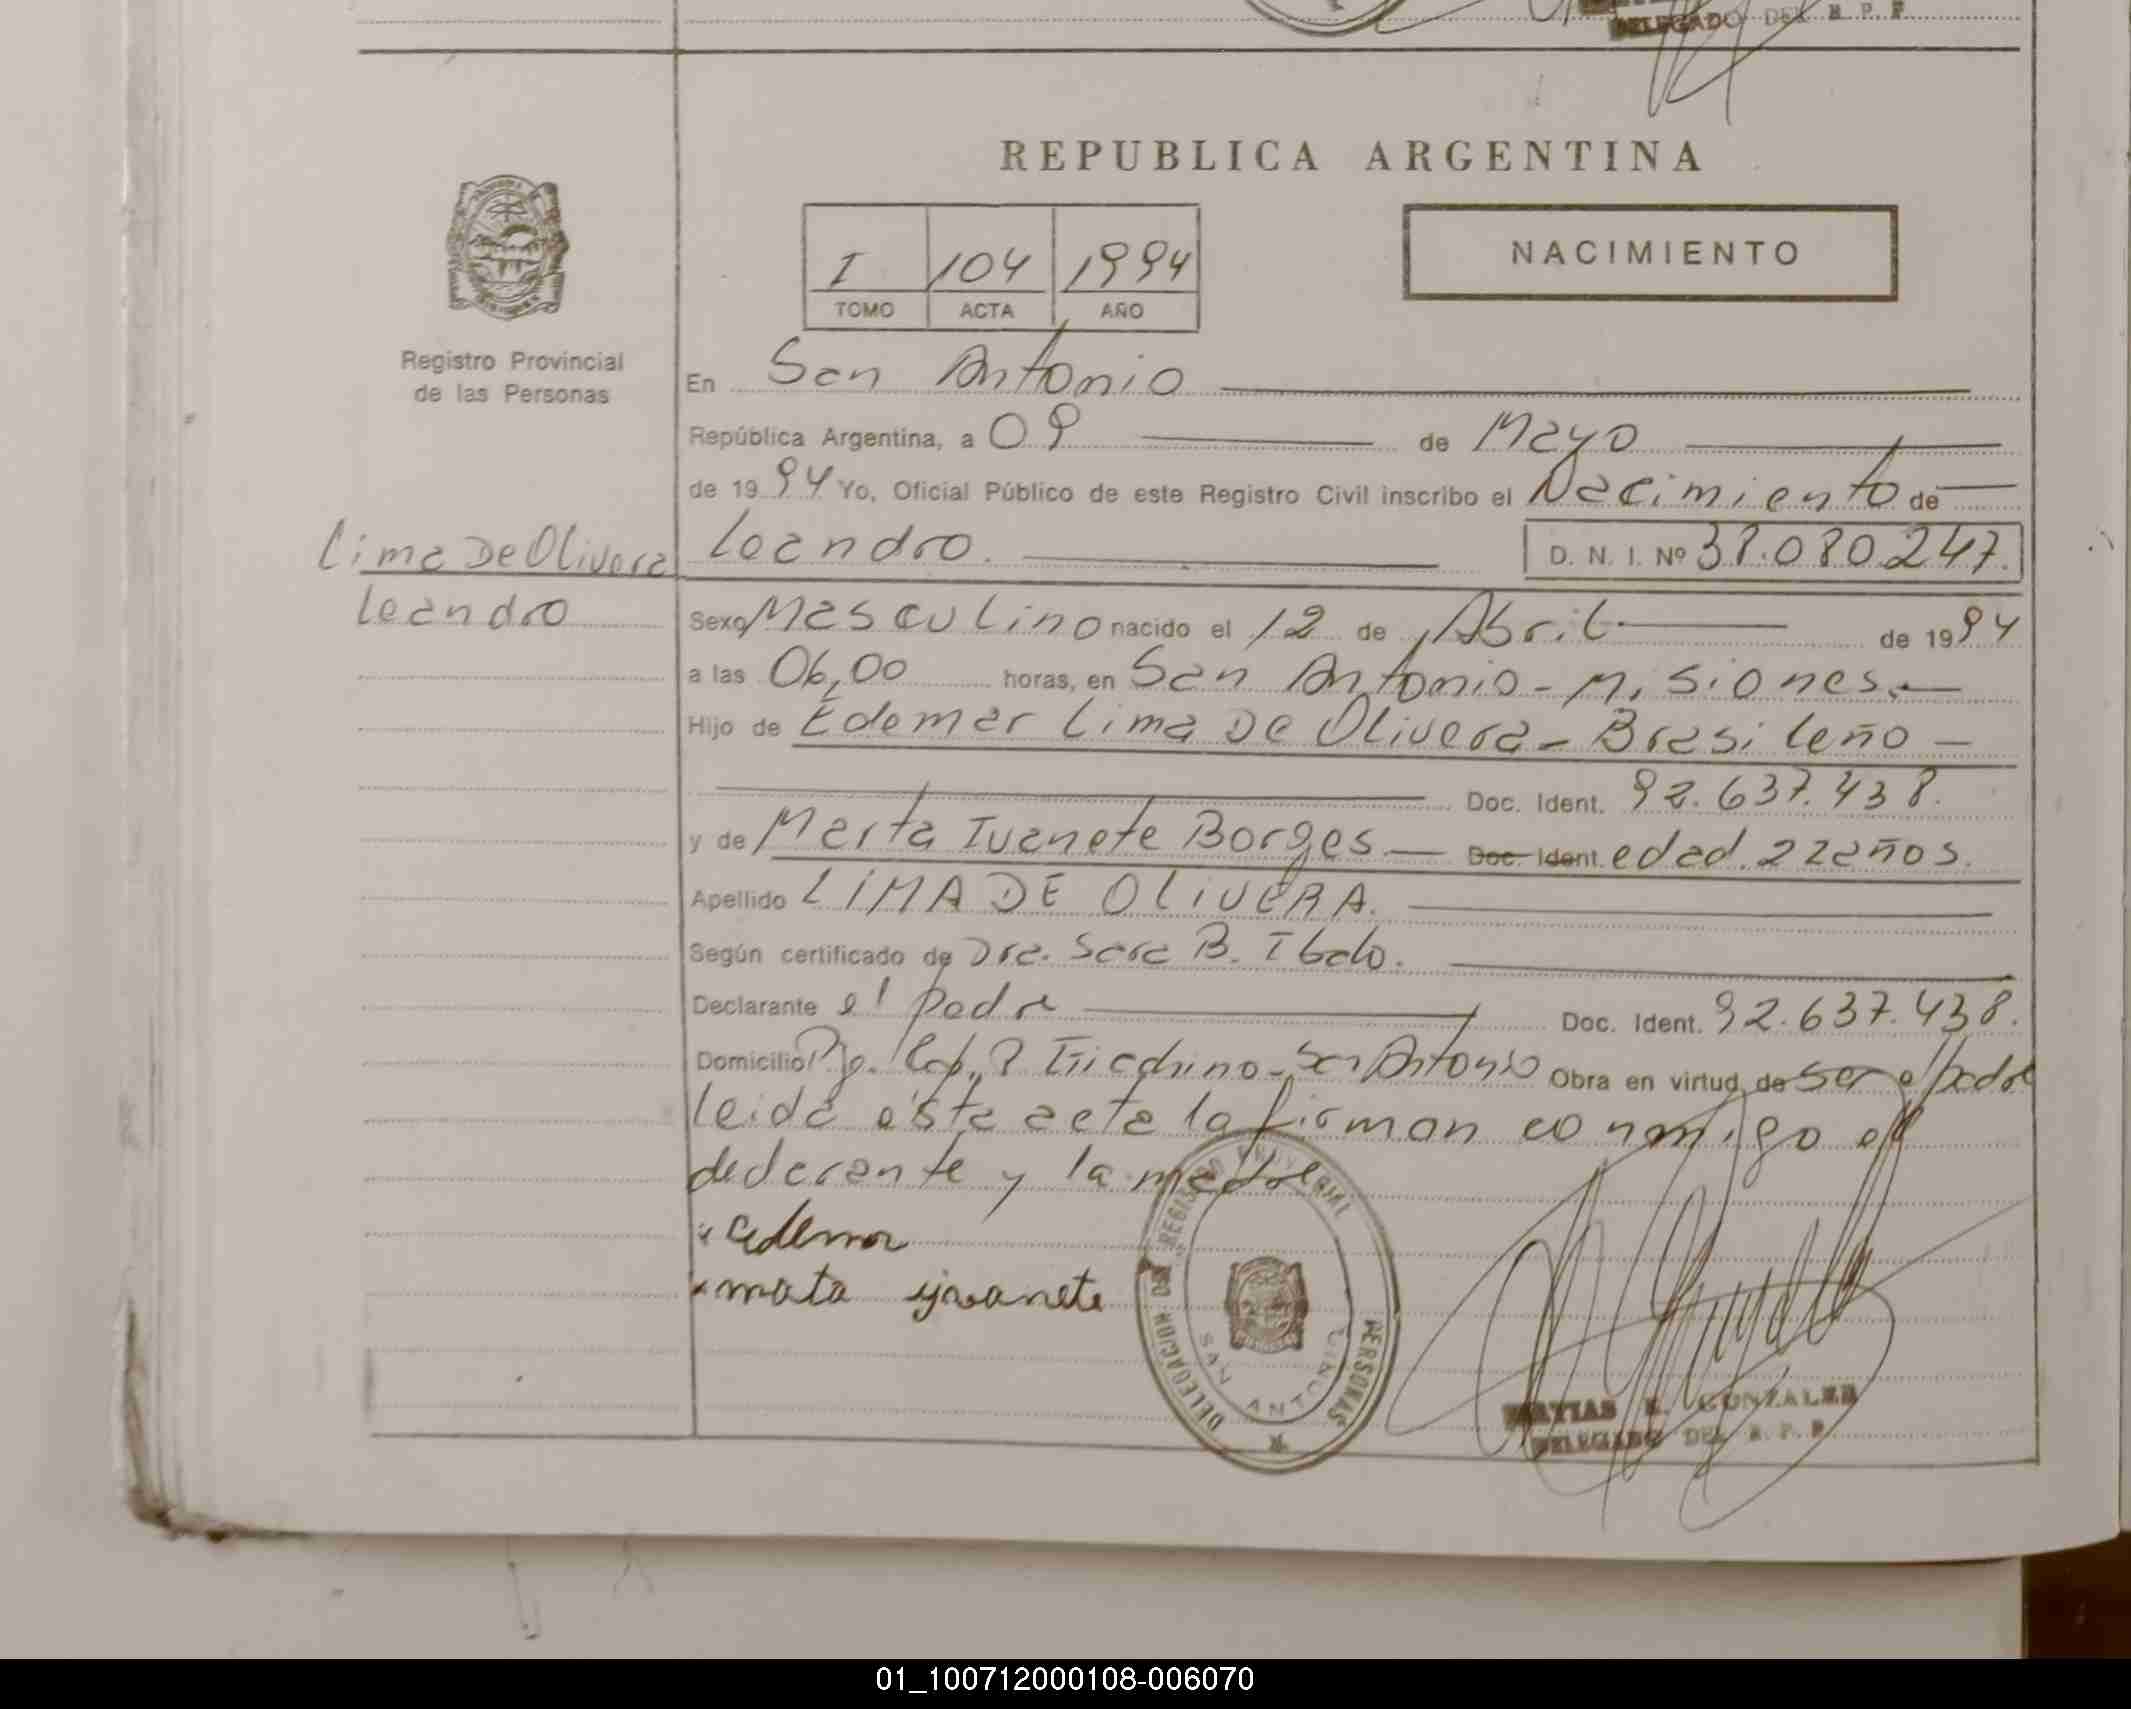 DELEGADO DEL R. P. P.
REPUBLICA ARGENTINA
NACIMIENTO
I 104 1994
TOMO ACTA AÑO
Registro Provincial
de las Personas
En San Antonio
República Argentina, a 09 de Mayo
de 1994 Yo, Oficial Público de este Registro Civil inscribo el Nacimiento de
Lima De Olivera
Leandro
Leandro. D. N. I. Nº 38.080.247.
Sexo Masculino nacido el 12 de Abril de 1994
a las 06,00 horas, en San Antonio - Misiones.
Hijo de Edemar Lima De Olivera - Brasileño
Doc. Ident. 92.637.438.
y de Marta Ivanete Borges. Doc. Ident. edad 22 años.
Apellido LIMA DE OLIVERA.
Según certificado de Dra. Sara B.
Declarante el padre Doc. Ident. 92.637.438.
Domicilio San Antonio Obra en virtud de ser el padre
leida ésta acta la firman conmigo el
declarante y la madre
edemar
mata ijvanete
DELEGACION DEL REGISTRO PROVINCIAL PERSONAS
SAN ANTONIO
MATIAS E. GONZALEZ
DELEGADO DEL R. P. P.
01_100712000108-006070